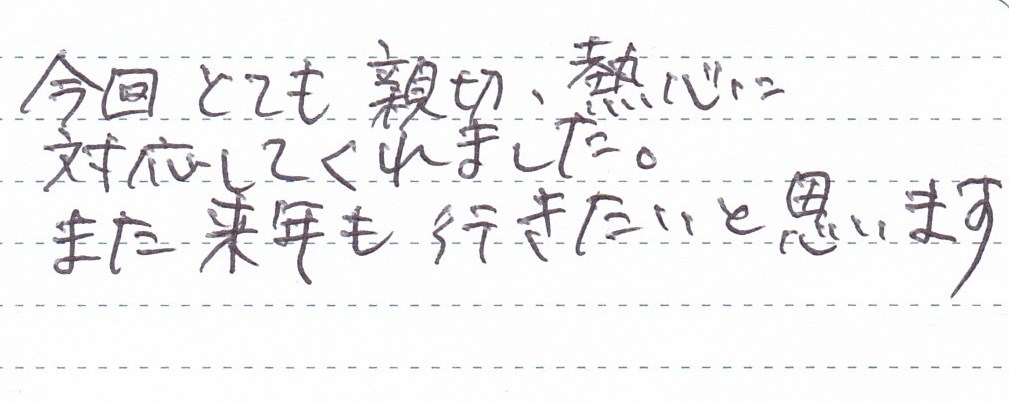 今回とても親切、熱心に
対応してくれました。
また来年も行きたいと思います